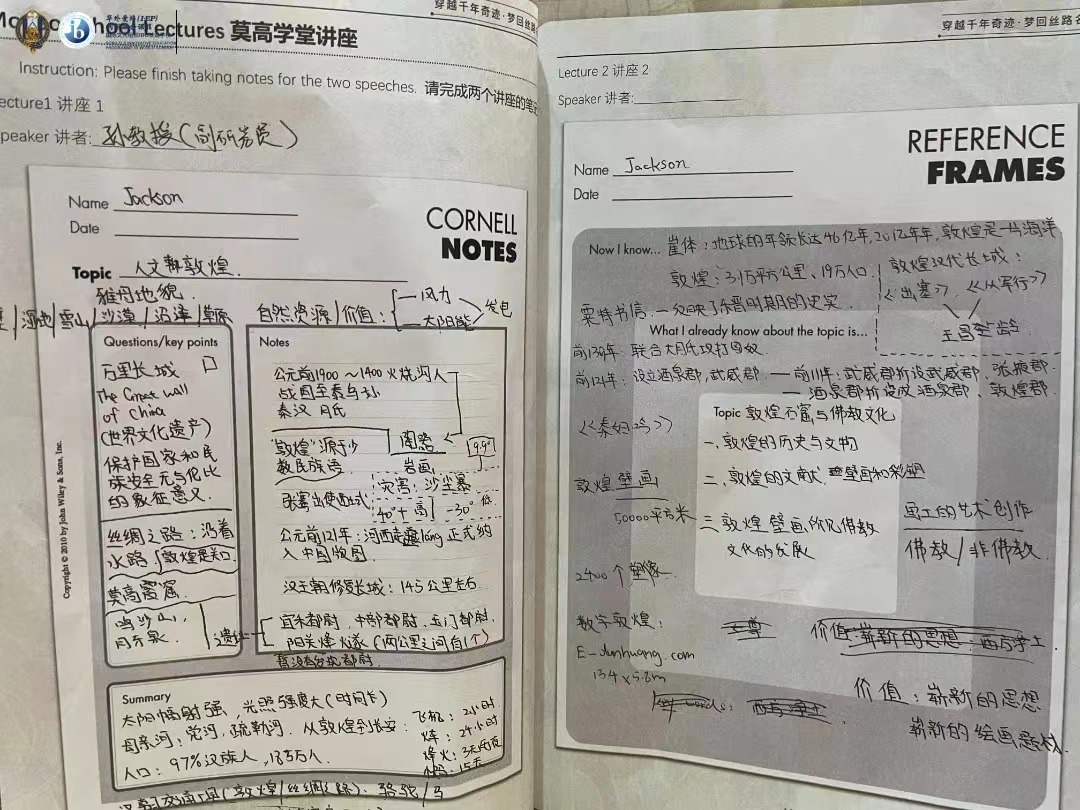 Lectures 莫高学堂讲座
Instruction: Please finish taking notes for the two speeches. 请完成两个讲座的笔记
ecture1 讲座 1
peaker 讲者: 孙教授(副研究员)
Name Jackson
Date
CORNELL
NOTES
Topic 人文敦煌.
雅丹地貌.
雪山/沙漠/沼泽/草原
自然资源/价值:
风力
太阳能
发电
Questions/key points
万里长城
The Great wall
of China
(世界文化遗产)
保护国家和民
族安全无与伦比
的象征意义.
丝绸之路:沿着
水路/敦煌是关口
莫高窟
鸣沙山,
月牙泉.
遗址
Notes
公元前1900～1400火烧沟人
战国至秦乌孙
秦汉 月氏
"敦煌"源于少
数民族语.
岩画
灾害:沙尘暴
40°+高
-30°低
张骞出使西域
公元前121年:河西走廊lang正式纳
入中国版图
汉王朝修复长城:145公里左右
宜禾都尉,中部都尉,玉门都尉,
阳关烽燧(两公里之间有1个)
Summary
太阳辐射强,光照强度大(时间长)
母亲河:党河,疏勒河.从敦煌到长安
飞机:2小时
火车:24小时
15天
人口:97%汉族人,18万人.
Copyright © 2010 by John Wiley & Sons, Inc.
穿越千年奇迹·梦回丝路
穿越千年奇迹·梦回丝路名
Lecture 2 讲座 2
Speaker 讲者:
REFERENCE
FRAMES
Name Jackson
Date
Now I know... 崖体:地球的年龄长达46亿年,20亿年年,敦煌是一片海洋
敦煌:3.1万平方公里、19万人口
敦煌汉代长城:
《出塞》、《从军行》
王昌龄
粟特书信.—反映了东晋时期的史实
What I already know about the topic is...
前139年:联合大月氏攻打匈奴.
前121年:设立酒泉郡,武威郡.—前111年:武威郡析设武威郡、张掖郡.
—酒泉郡析设成酒泉郡、敦煌郡.
Topic 敦煌石窟与佛教文化
一、敦煌的历史与文物
二、敦煌的文献、壁画和彩塑
三、敦煌壁画所见佛教
文化的发展
《秦妇吟》
敦煌壁画
50000平方米
2400个塑像
画工的艺术创作
佛教/非佛教
数字敦煌:
E-dunhuang.com
134×5.8m
价值:崭新的思想
崭新的绘画题材.